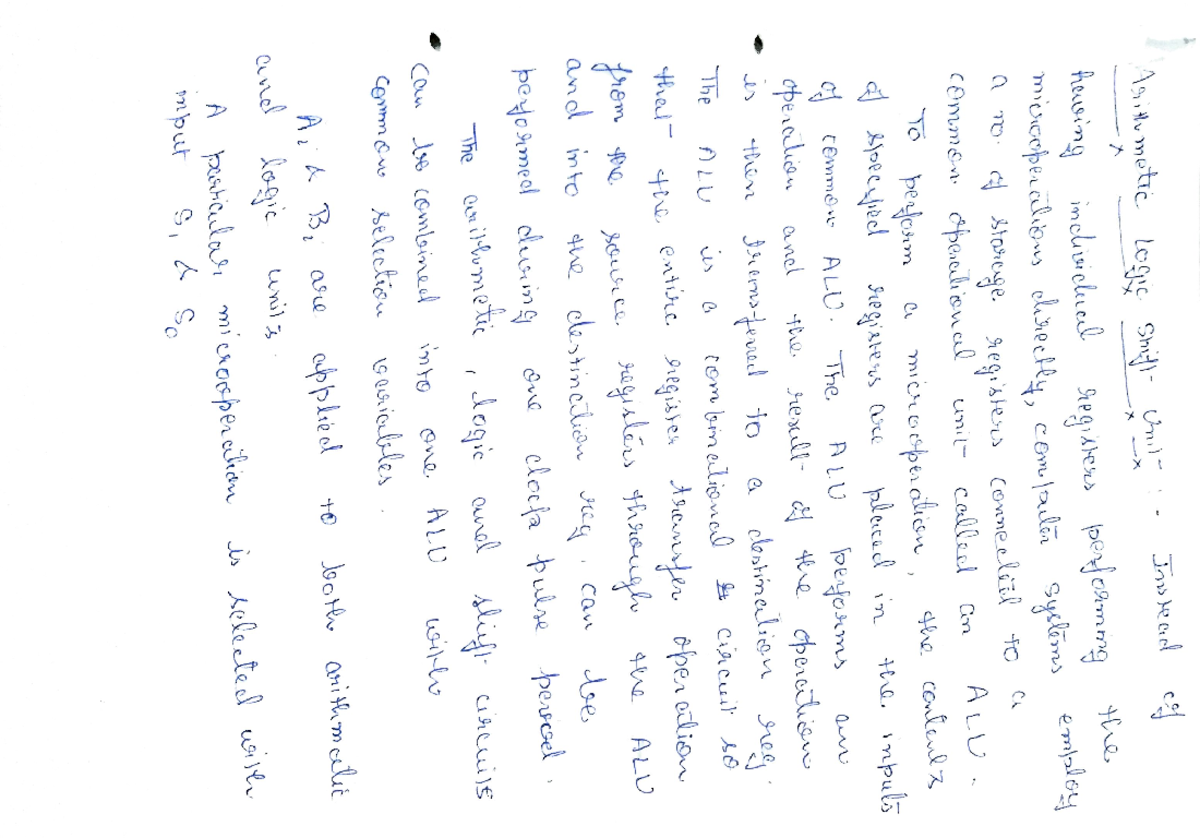 Arithmetic Logic Shift Unit :- Instead of
having individual registers performing the
microoperations directly, computer systems employ
a no. of storage registers connected to a
common operational unit called an ALU.
To perform a microoperation, the contents
of specified registers are placed in the inputs
of common ALU. The ALU performs an
operation and the result of the operation
is then transferred to a destination reg.
The ALU is a combinational circuit so
that the entire register transfer operation
from the source registers through the ALU
and into the destination reg. can be
performed during one clock pulse period.
The arithmetic, logic and shift circuits
can be combined into one ALU with
common selection variables.
Ai & Bi are applied to both arithmatic
and logic units.
A particular microoperation is selected with
input S1 & S0